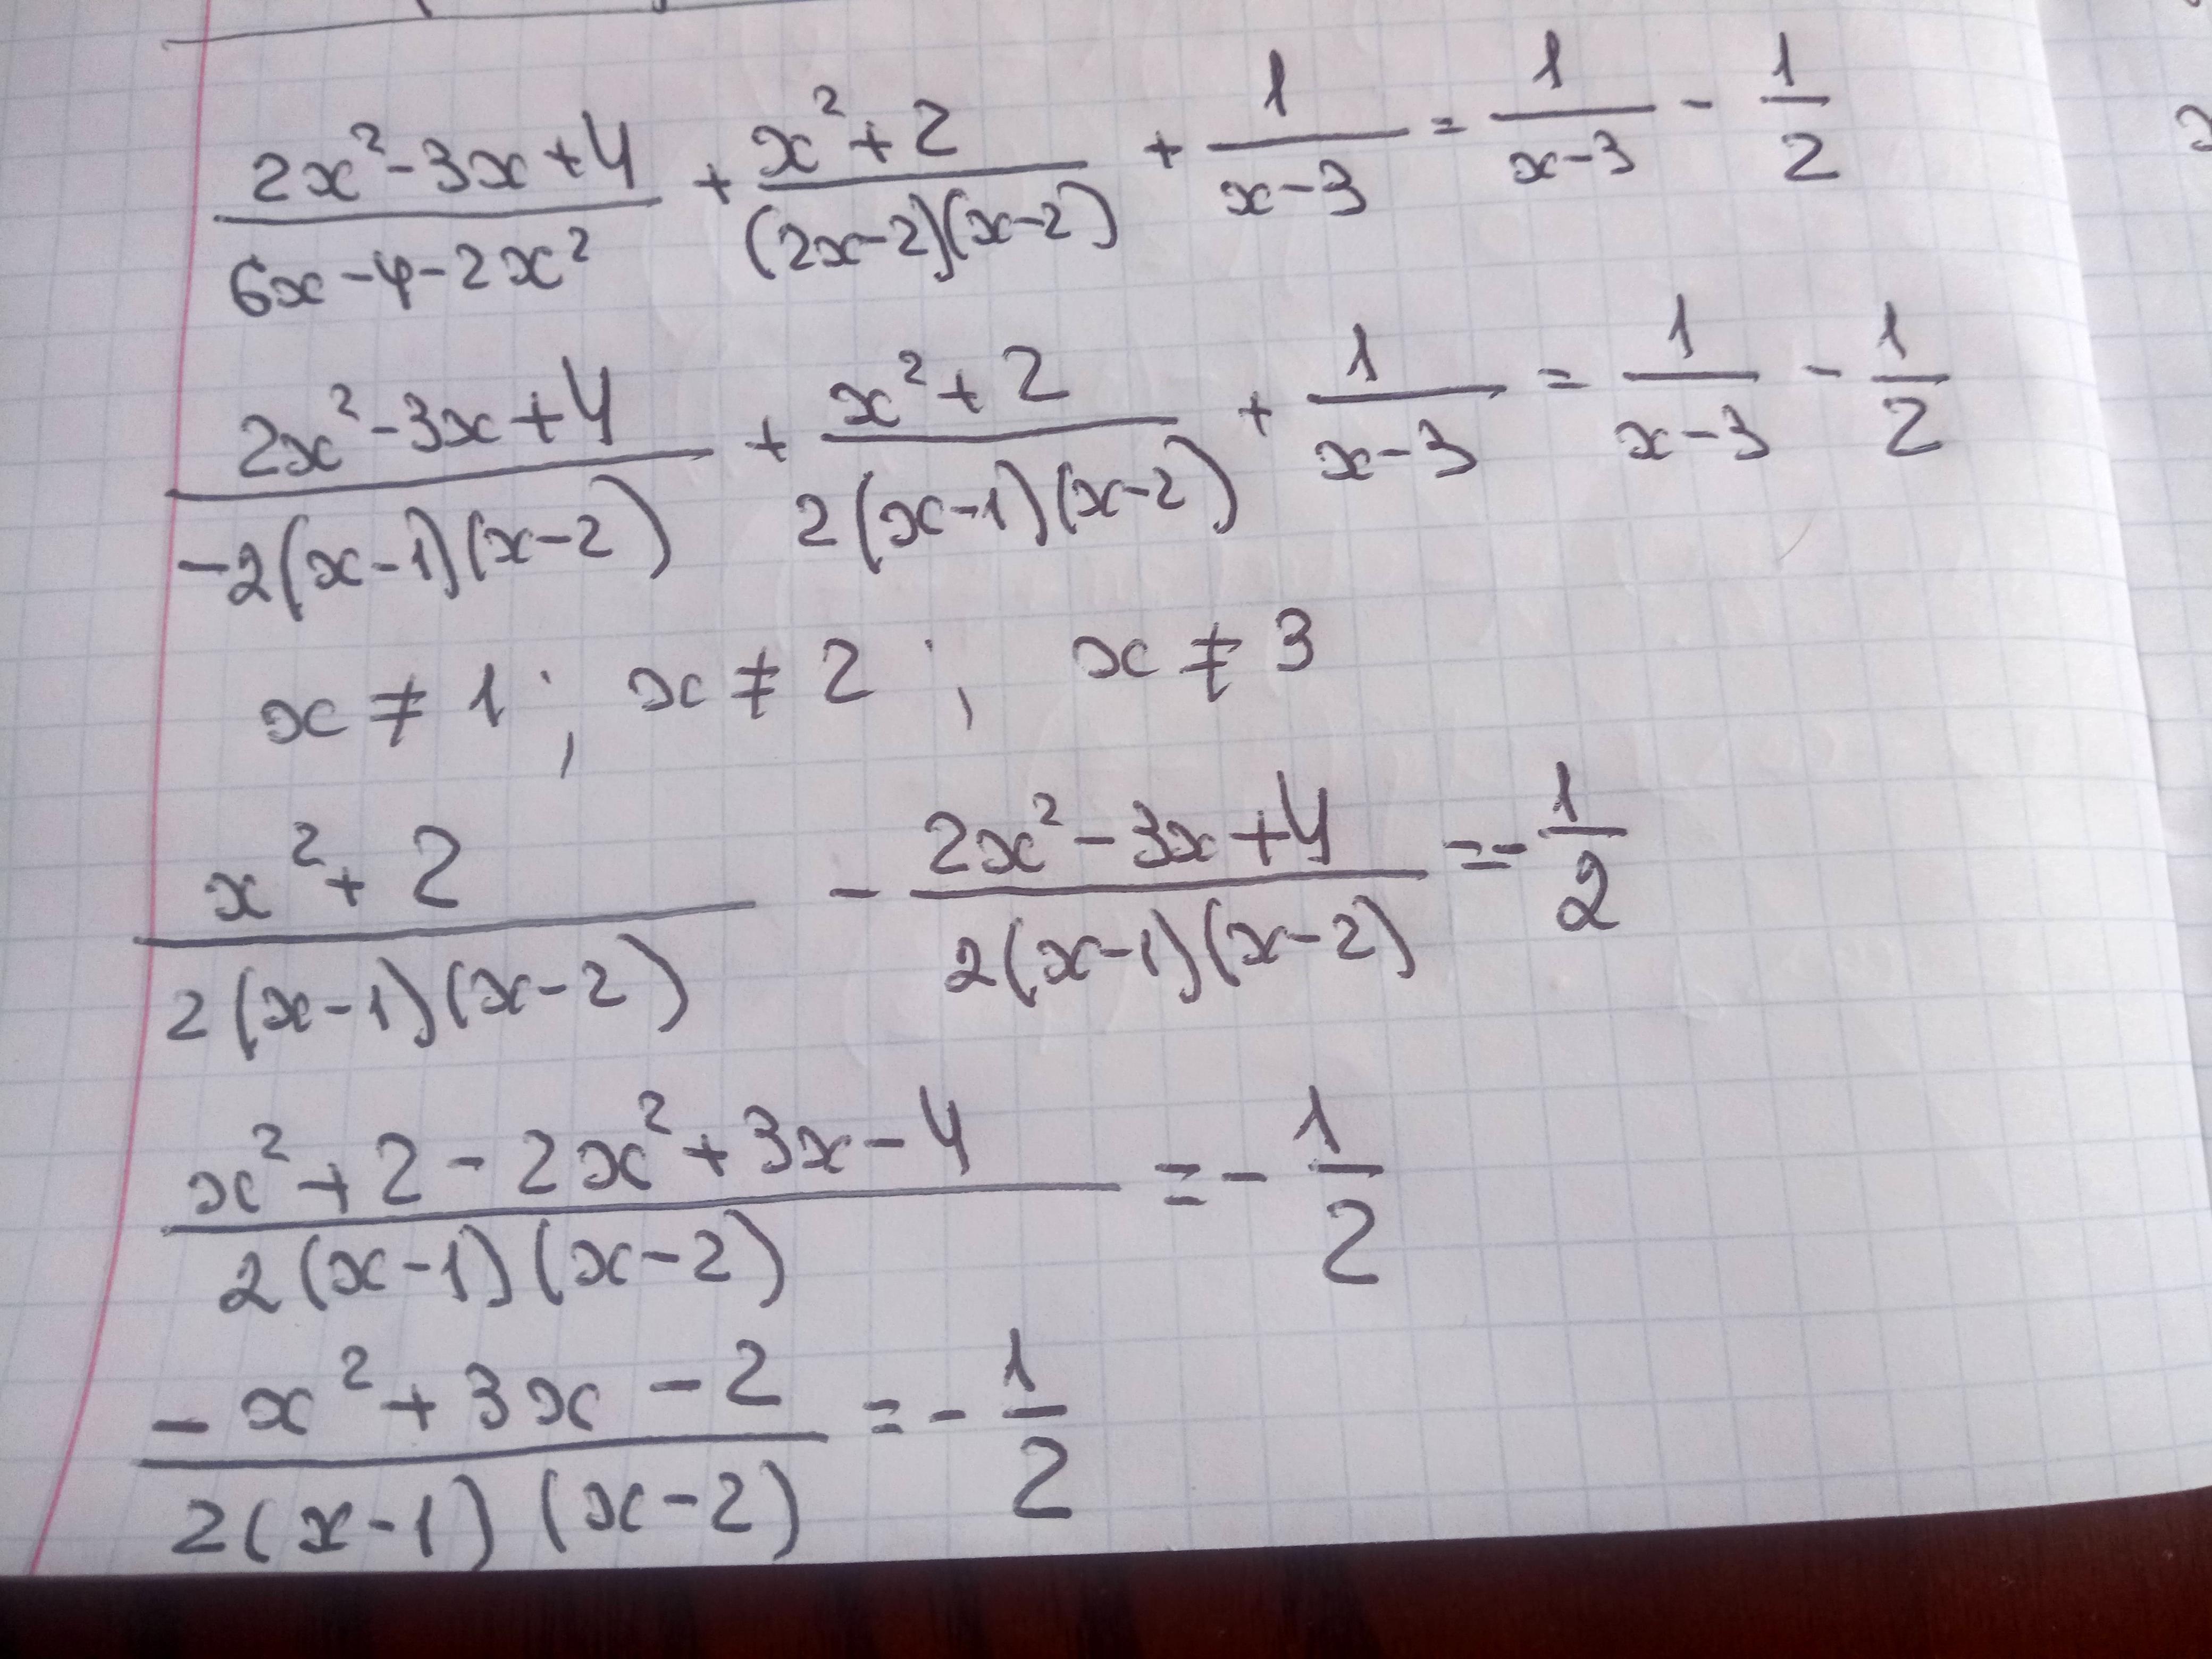 (2x²-3x+4)/(6x-4-2x²) + (x²+2)/((2x-2)(x-2)) + 1/(x-3) = 1/(x-3) - 1/2
(2x²-3x+4)/(-2(x-1)(x-2)) + (x²+2)/(2(x-1)(x-2)) + 1/(x-3) = 1/(x-3) - 1/2
x ≠ 1 ; x ≠ 2 ; x ≠ 3
(x²+2)/(2(x-1)(x-2)) - (2x²-3x+4)/(2(x-1)(x-2)) = -1/2
(x²+2-2x²+3x-4)/(2(x-1)(x-2)) = -1/2
(-x²+3x-2)/(2(x-1)(x-2)) = -1/2